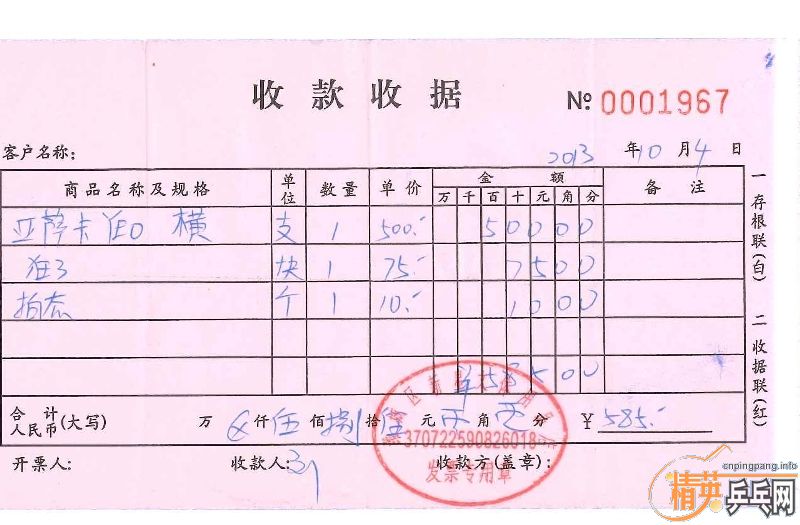 收款收据
№ 0001967
客户名称:
2013 年 10 月 4 日
商品名称及规格 单位 数量 单价 金额 备注
万 千 百 十 元 角 分
亚萨卡 YEO 横 支 1 500.- 5 0 0 0 0
狂3 块 1 75.- 7 5 0 0
拍套 个 1 10.- 1 0 0 0
¥ 5 8 5 0 0
合计人民币(大写) 万 仟 伍 佰 捌 拾 伍 元 角 分 ¥ 585.-
开票人: 收款人: 收款方(盖章):
370722590826018
发票专用章
一存根联(白) 二收据联(红)
cnpingpang.info
精英乒乓网